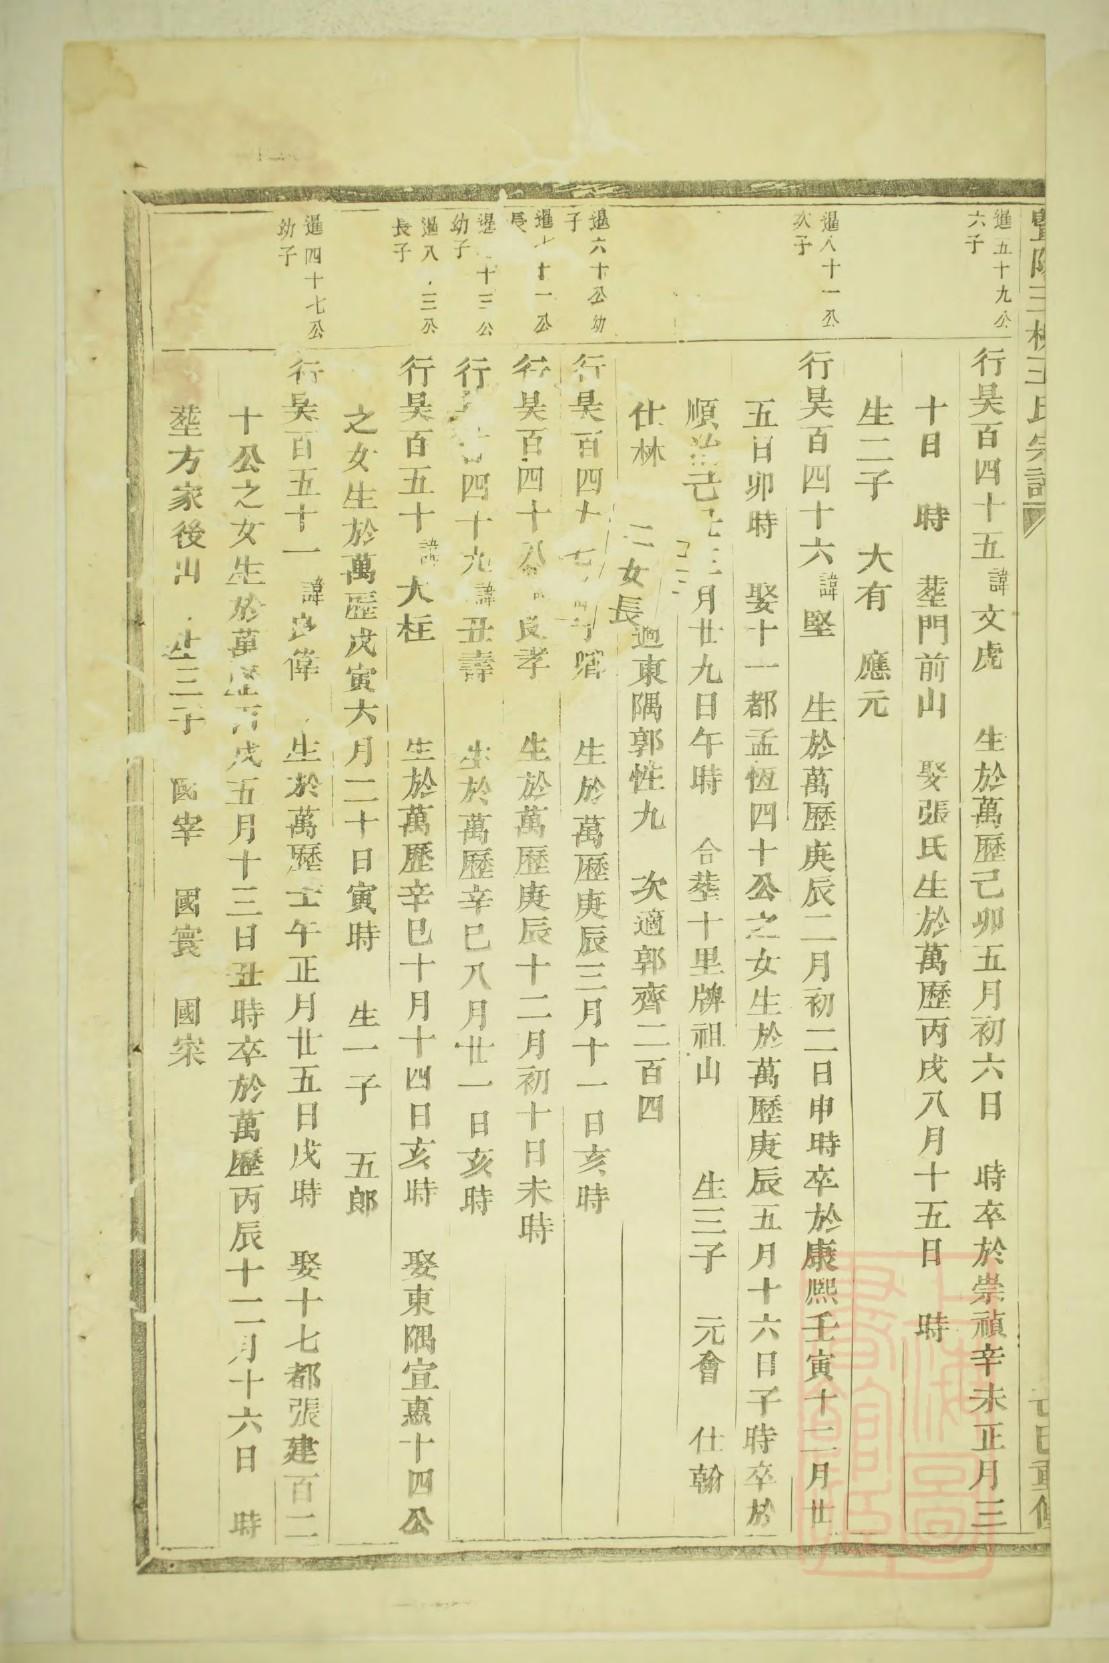 暨陽三橋王氏宗譜
七巳重修
暹五十九公
六子
行昊百四十五 諱文虎 生於萬歷己卯五月初六日 時卒於崇禎辛未正月三
十日 時 塟門前山 娶張氏生於萬歷丙戌八月十五日 時
生二子 大有 應元
暹八十一公
次子
行昊百四十六 諱堅 生於萬歷庚辰二月初二日申時卒於康熙壬寅十二月廿
五日卯時 娶十一都孟恆四十公之女生於萬歷庚辰五月十六日子時卒於
順治己 月廿九日午時 合塟十里牌祖山 生三子 元會 仕翰
仕林 二女長適東隅郭性九 次適郭齊二百四
暹六十公幼
子
行昊百四十七 生於萬歷庚辰三月十一日亥時
暹 十一公
長
行昊百四十八 良孝 生於萬歷庚辰十二月初十日未時
暹 十三公
幼子
行 四十九 諱丑壽 生於萬歷辛巳八月廿一日亥時
暹八 三公
長子
行昊百五十 諱大枉 生於萬歷辛巳十月十四日亥時 娶東隅宣惠十四公
之女生於萬歷戊寅六月二十日寅時 生一子 五郎
暹四十七公
幼子
行昊百五十一 諱 偉 生於萬歷壬午正月廿五日戌時 娶十七都張建百二
十公之女生於萬歷丙戌五月十三日丑時卒於萬歷丙辰十二月十六日 時
塟方家後山 生三子 國宰 國寰 國寀